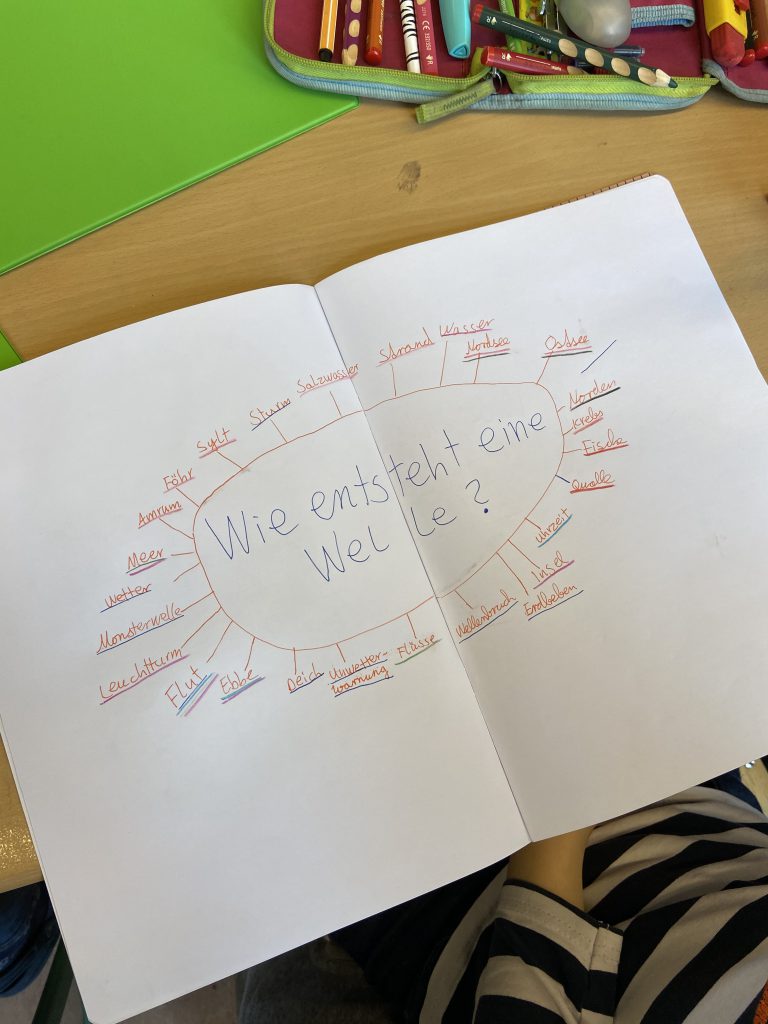 Wie entsteht eine
Welle?
Strand
Wasser
Nordsee
Ostsee
Norden
Krebs
Fische
Qualle
Uhrzeit
Insel
Erdbeben
Wellenbruch
Flüsse
Unwetter-
warnung
Deich
Ebbe
Flut
Leuchtturm
Monsterwelle
Wetter
Meer
Amrum
Föhr
Sylt
Sturm
Salzwasser